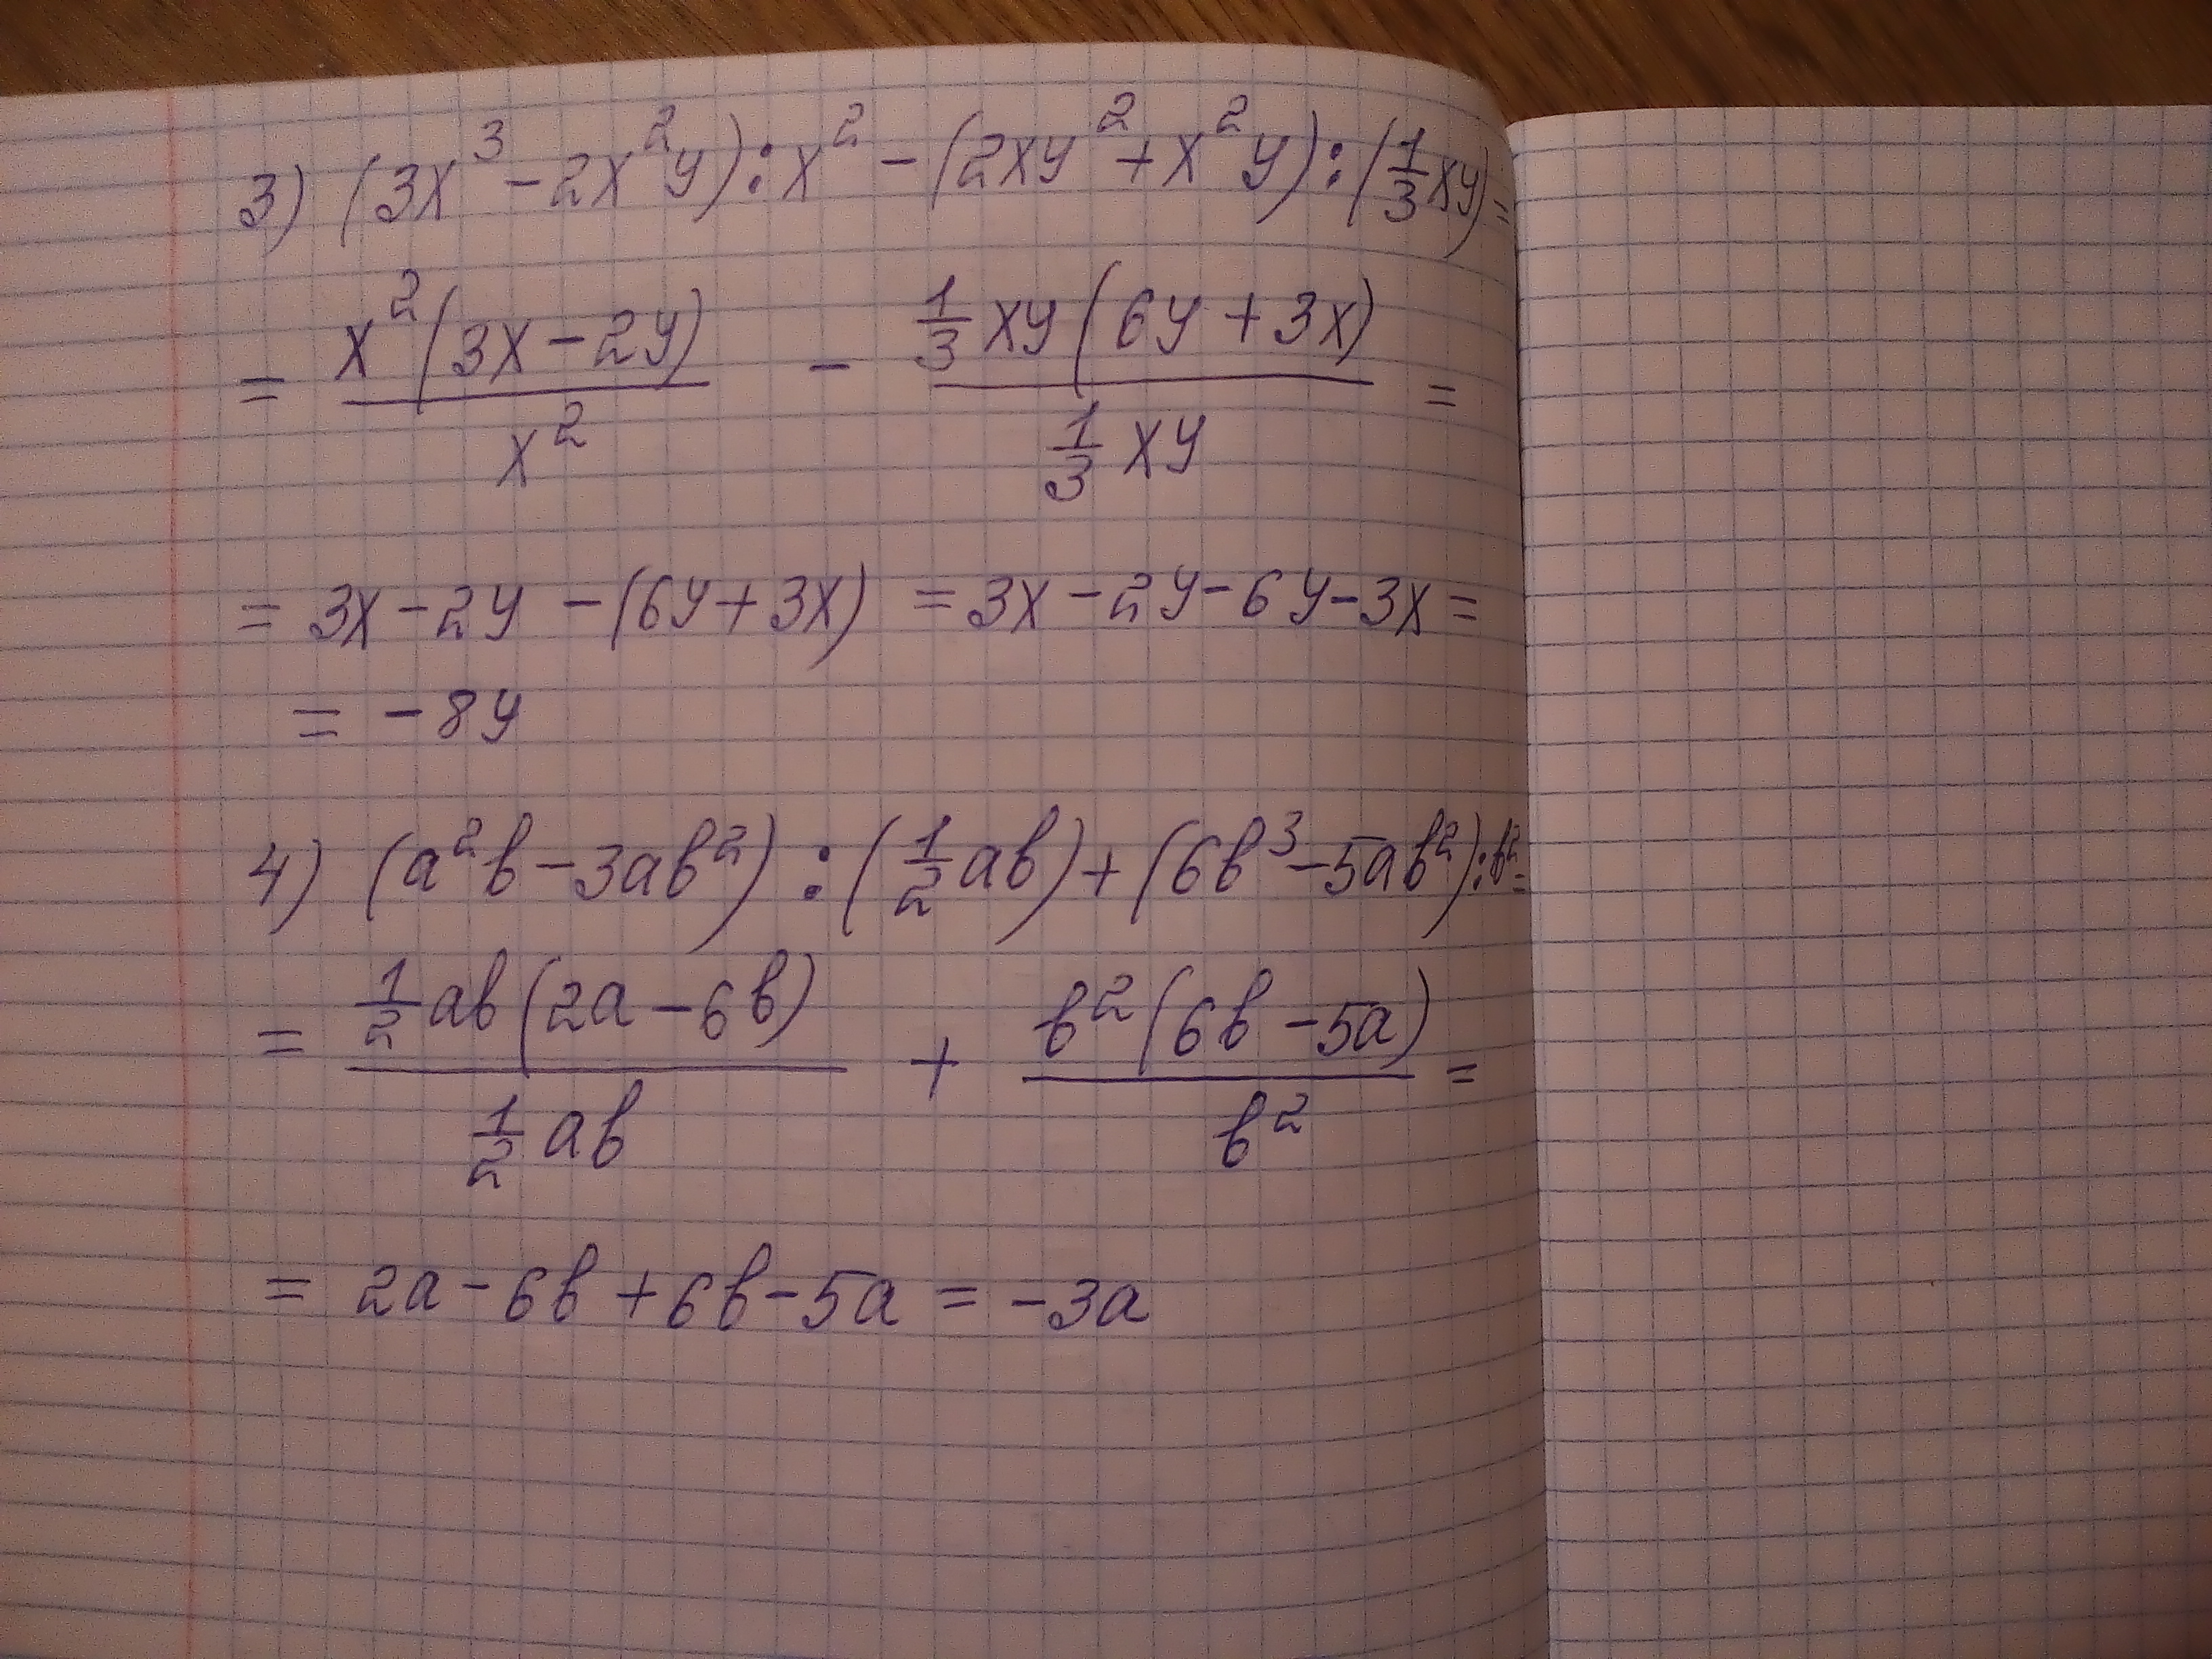 3) (3x³ - 2x²y) : x² - (2xy² + x²y) : (1/3 xy) =
= x²(3x - 2y)/x² - 1/3 xy(6y + 3x)/(1/3 xy) =
= 3x - 2y - (6y + 3x) = 3x - 2y - 6y - 3x =
= -8y
4) (a²b - 3ab²) : (1/2 ab) + (6b³ - 5ab²) : b² =
= 1/2 ab(2a - 6b)/(1/2 ab) + b²(6b - 5a)/b² =
= 2a - 6b + 6b - 5a = -3a